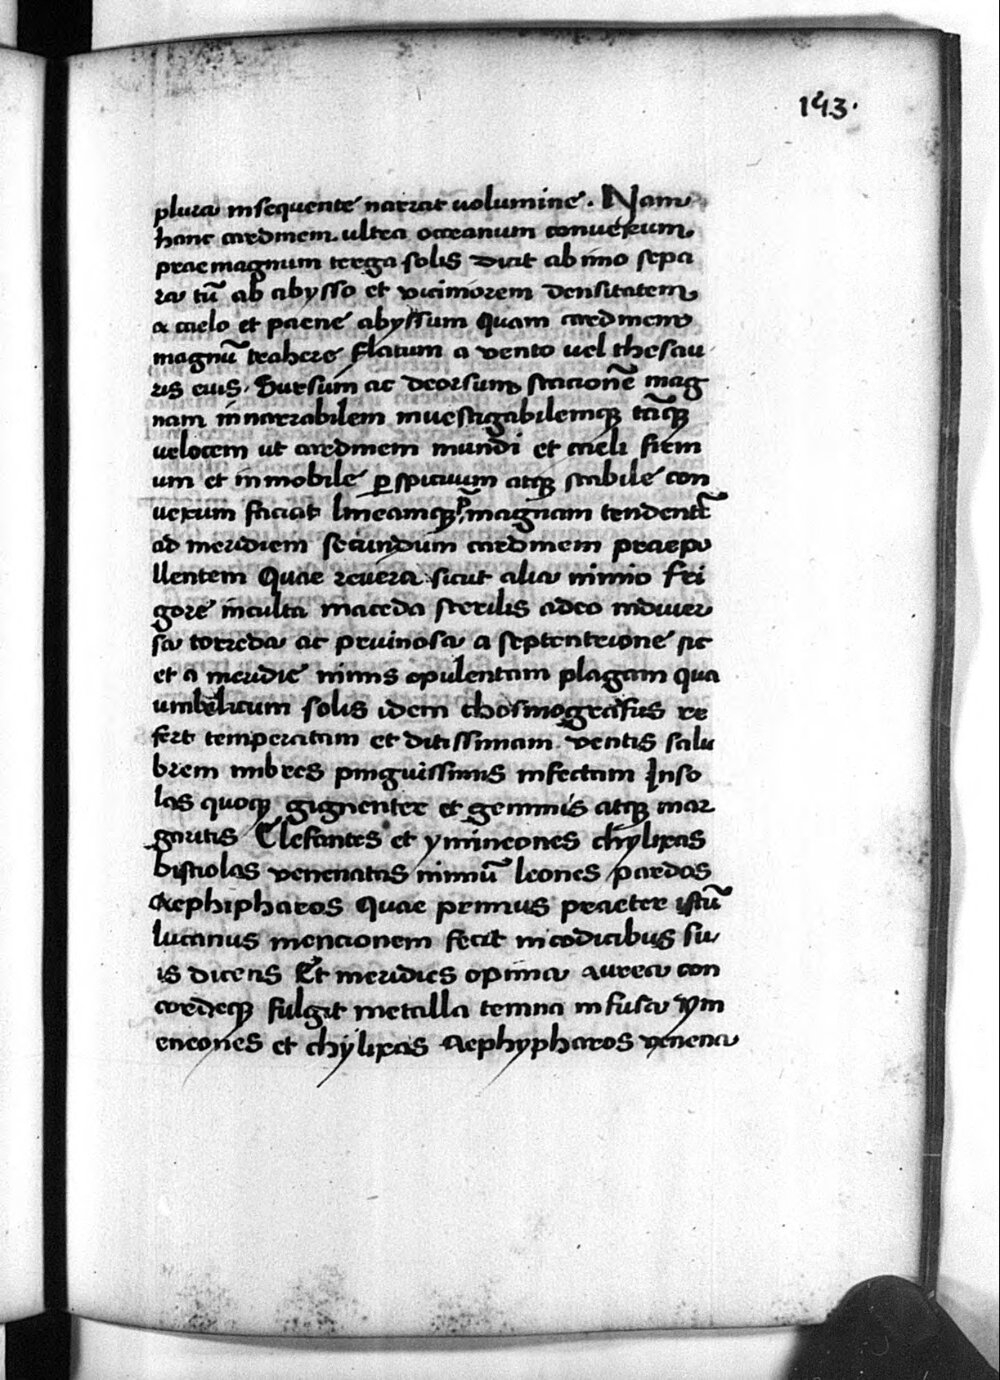 143.
plura insequente narrat uolumine. Nam
hanc cardinem ultra occeanum conuexum
prae magnum terga solis dicit ab imo sepa
ra tū ab abysso et vicimorem densitatem
a caelo et paene abyssum quam cardinem
magnū trahere flatum a vento uel thesau
ris eius. Sursum ac deorsum stacionē mag
nam innarrabilem inuestigabilemq; tāq;
uelocem ut cardinem mundi et caeli firm
um et inmobile p̱spicuum atq; stabile con
uexum faciat lineamq; magnam tendentē
ad meridiem secundum cardinem praepo
llentem Quae reuera sicut alia nimio fri
gore inculta maceda sterilis adeo indiuer
sa torreda ac pruinosa a septentrione sic
et a meridie nimis opulentam plagam qua
umbelicum solis idem chosmografus re
fert temperatam et ditissimam ventis salu
brem imbres pinguissimis infectam Inso
las quoq; gignenter et gemmis atq; mar
garitis Elefantes et ymineones chylixas
bistiolas venenatas nimiū leones pardos
Aephipharos Quae primus praeter istū
lucanus mencionem fecit in codicibus su
is dicens Et meridies opima aurea con
cordeq; fulgit metalla temna infusa ym
eneones et chylixas Aephypharos venena